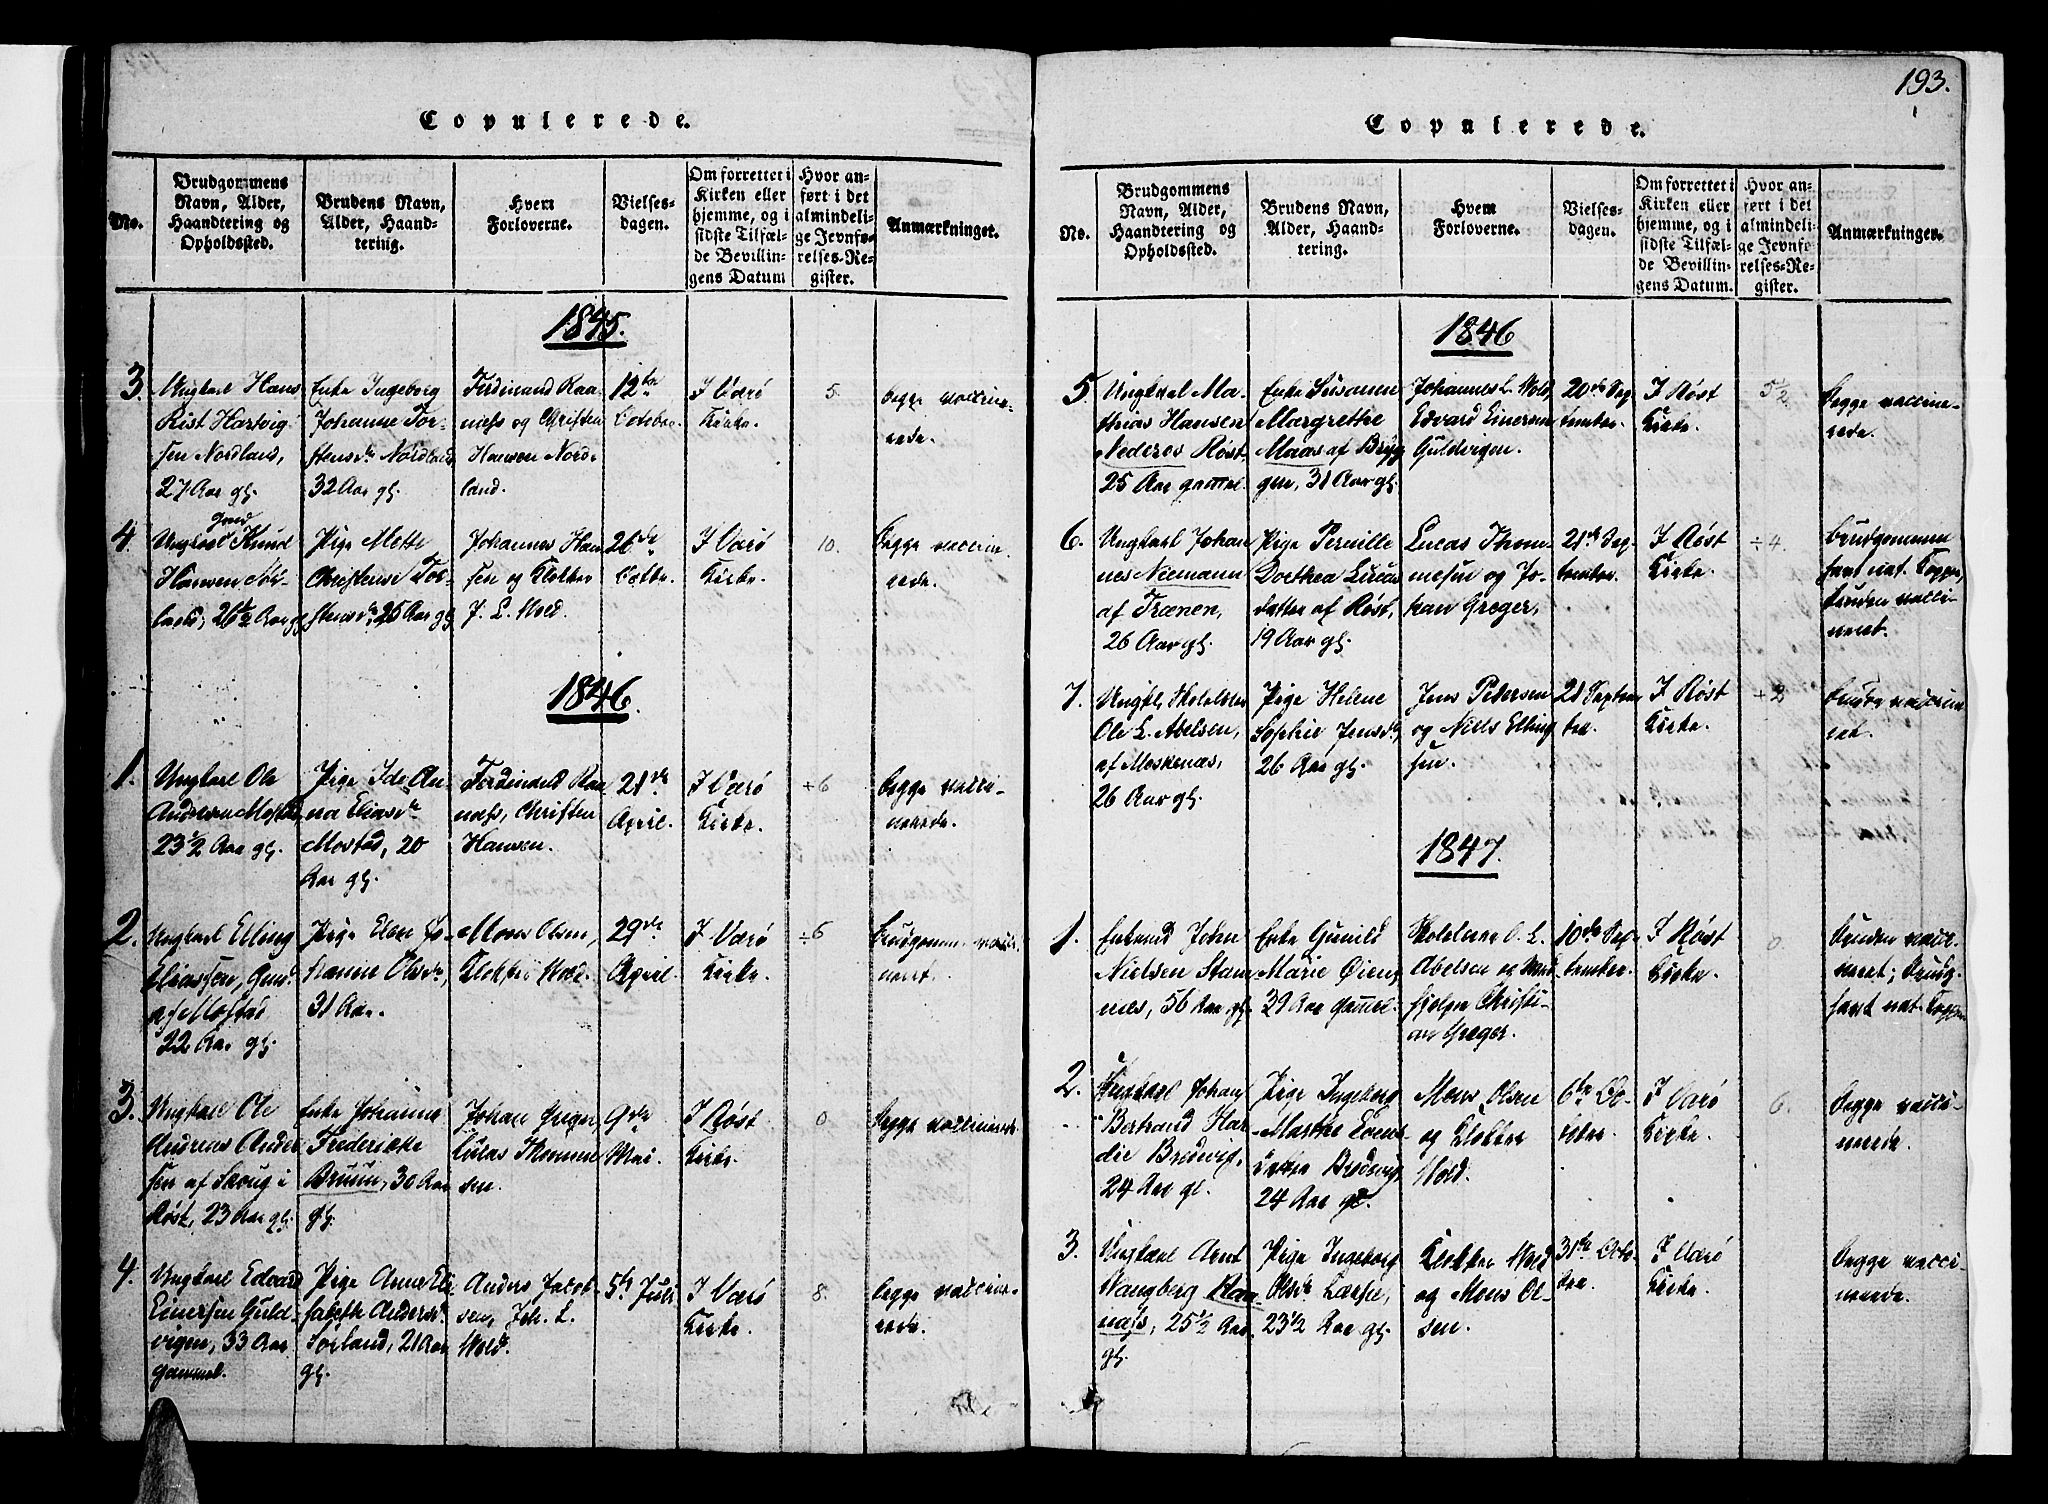 193.
Copulerede.
No.
Brudgommens
Navn, Alder,
Haandtering og
Opholdssted.
Brudens Navn,
Alder, Haand-
tering.
Hvem
Forloverne.
Vielses-
dagen.
Om forrettet i
Kirken eller
hjemme, og i
sidste Tilfæl-
de Bevillin-
gens Datum
Hvor an-
ført i det
almindeli-
ge Jevnfø-
relses-Re-
gister.
Anmærkninger.
1845.
3.
Ungkarl Hans
Rist Hartvig
sen Nordland,
27 Aar gl.
Enke Ingeborg
Johanne Tor-
stensdr Nordland
32 Aar gl.
Ferdinand Raa
næss og Christen
Hansen Nord-
land.
12te
October
I Værø
Kirke.
5.
Begge vaccine-
rede.
4.
Ungkarl Gmd Knud
Hansen
26½ Aar gl
Pige Mette
Christense Tor-
stensdr, 25 Aar gl
Johannes Han
sen og Klokker
J. L. Wold.
26de
Octbr.
I Værø
Kirke.
10.
Begge vaccine-
rede.
1846.
1.
Ungkarl Ole
Andersen Mostad
23½ Aar gl.
Pige Ida An-
na Eliasdr
Mostad, 20
Aar gl.
Ferdinand Raa
næss, Christen
Hansen.
21de
April.
I Værø
Kirke.
÷6
Begge vacci-
nerede.
2.
Ungkarl Elling
Eliassen, Gmd.
af Mostad
22 Aar gl.
Pige Elen Jo-
hanna Olsdr,
31 Aar.
Mons Olsen,
Klokker Wold.
29de
April.
I Værø
Kirke.
÷6
Brudgommen vacci-
neret.
3.
Ungkarl Ole
Andreas Ander
sen af Skoug i
Røst, 23 Aar gl.
Enke Johanna
Frederikke
Bruun, 30 Aar
gl.
Johan Greger
Lucas Thommes
sen.
9de
Mai.
I Røst
Kirke.
0
Begge vaccinerede.
4.
Ungkarl Edvard
Einersen Guld-
vigen, 33 Aar
gammel.
Pige Anne Eli
sabeth Andersdr
Sørland, 21 Aar
gl.
Anders Jacob-
sen, Joh. L.
Wold.
5te Juli
I Værø
Kirke.
8.
Begge vaccine-
rede.
Copulerede.
No.
Brudgommens
Navn, Alder,
Haandtering og
Opholdssted.
Brudens Navn,
Alder, Haand-
tering.
Hvem
Forloverne.
Vielses-
dagen.
Om forrettet i
Kirken eller
hjemme, og i
sidste Tilfæl-
de Bevillin-
gens Datum.
Hvor an-
ført i det
almindeli-
ge Jevnfø-
relses-Re-
gister.
Anmærkninger.
1846
5.
Ungkarl Ma-
thias Hansen
Nedrenes Røst
25 Aar gammel.
Enke Susanna
Margrethe
Maas af Bryg
gen, 31 Aar gl.
Johannes L. Wold,
Edvard Einersen
Guldvigen.
20de Sep
tember
I Røst
Kirke.
5½
Begge vaccine-
rede.
6.
Ungkarl Johan
nes Niemann
af Trænen,
26 Aar gl.
Pige Pernille
Dorthea Lucas
datter af Røst,
19 Aar gl.
Lucas Thom-
mesen og Jo-
han Greger,
21de Sep
tember
I Røst
Kirke.
÷4.
Brudgommen
havt nat. Kopper,
Bruden vacci-
neret.
7.
Ungkl, Skolelærer
Ole L. Abelsen,
af Moskenæs,
26 Aar gl.
Pige Helene
Sophie Jensdr,
26 Aar gl.
Jens Pedersen
og Niels Elling
sen.
21 Septem
ber
I Røst
Kirke.
÷2
1847.
1.
Enkemd John
Nielsen Stam
nes, 56 Aar gl.
Enke Gunild
Marie Øien,
39 Aar gammel.
Skolelærer O. L.
Abelsen og Med
hjelper Christi-
an Greger.
10de Sep
tember.
I Røst
Kirke.
0.
Bruden vacci-
neret; Brudg.
havt nat. Kopper
2.
Ungkarl Johan
Bertrand Har
die Bredvig,
24 Aar gl.
Pige Ingeborg
Marthe Evens
datter Bredvig,
24 Aar gl.
Mons Olsen
og Klokker
Wold.
6te Oc-
tober
I Værø
Kirke.
6.
Begge vacci-
nerede.
3.
Ungkarl Arnt
Wangberg Raa-
næs, 25½ Aar
gl.
Pige Ingeborg
Olsdr
23½ Aar gl.
Klokker Wold
og Mons Ol-
sen.
31te Octo-
ber.
I Værø
Kirke.
Begge vacci-
nerede.